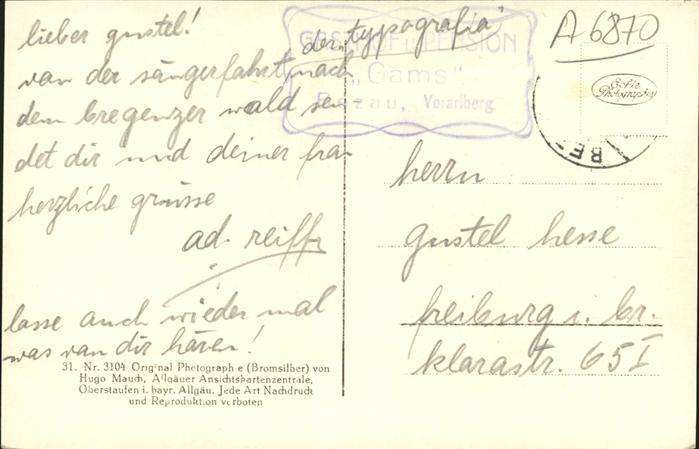 lieber gustel!
der „typografia"
von der sängerfahrt nach
dem bregenzer wald sen-
det dir und deiner frau
herzliche grüsse
ad. reiff
lasse auch wieder mal
was von dir hören!
31. Nr. 3104 Original Photographie (Bromsilber) von
Hugo Mauch, Allgäuer Ansichtskartenzentrale,
Oberstaufen i. bayr. Allgäu. Jede Art Nachdruck
und Reproduktion verboten
GASTHOF u. PENSION
„Gams"
Bezau, Vorarlberg
A 6870
Echte
Photographie
BEZ
herrn
gustel hesse
freiburg i. br.
klarastr. 65 I